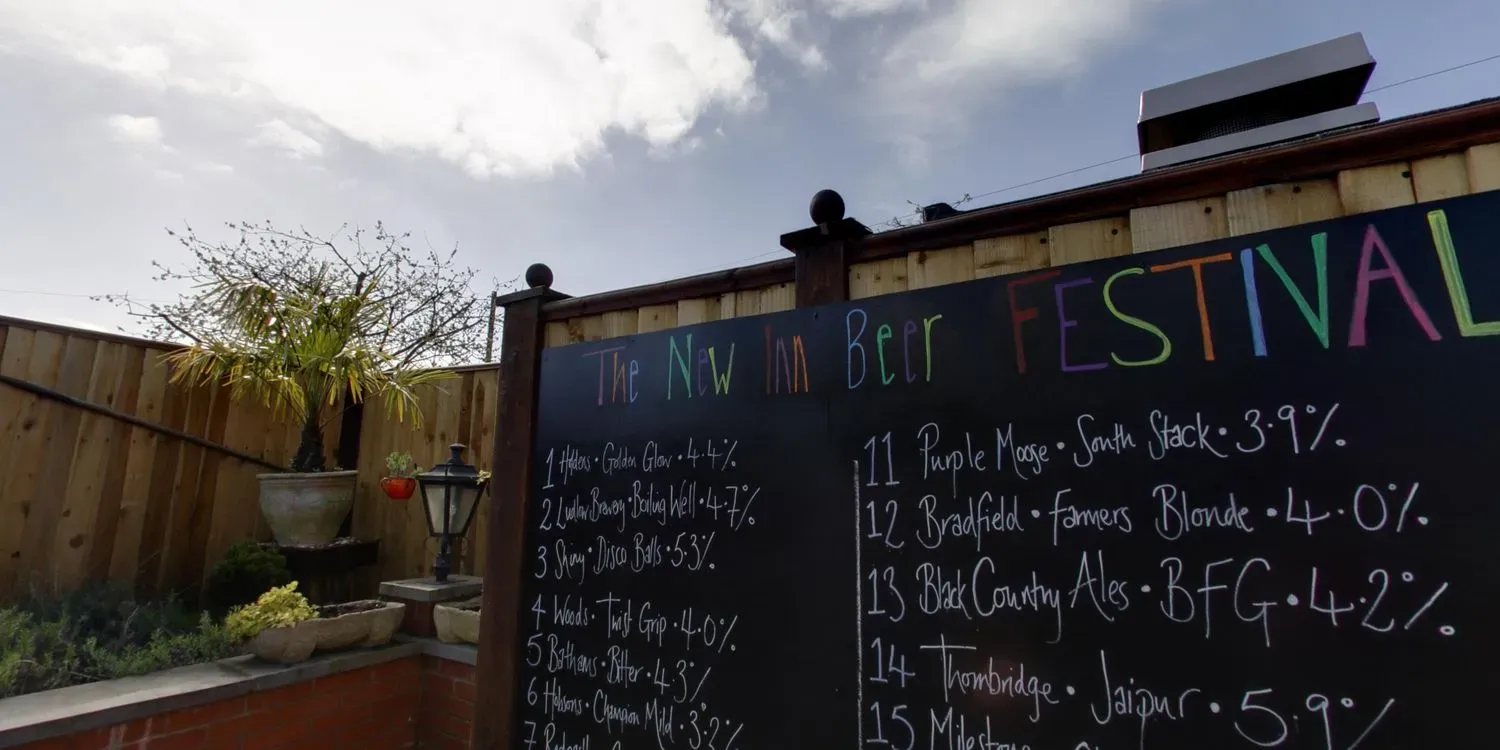 The New Inn Beer FESTIVAL
1 Holdens • Golden Glow • 4.4%
2 Ludlow Brewery • Boiling Well • 4.7%
3 Shiny • Disco Balls • 5.3%
4 Woods • Twist Grip • 4.0%
5 Bathams • Bitter • 4.3%
6 Hobsons • Champion Mild • 3.2%
7
11 Purple Moose • South Stack • 3.9%
12 Bradfield • Farmers Blonde • 4.0%
13 Black Country Ales • BFG • 4.2%
14 Thornbridge • Jaipur • 5.9%
15 Milestone